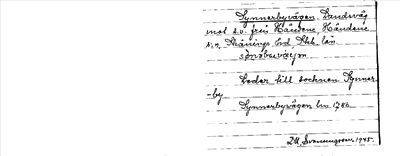 Synnerbyvägen. Landsväg
mot s.v. från Händene, Händene
s:n, Skånings hd, Skb. län
Leder till socknen Synner-
-by
Synnerbyvägen lm 1786
1945.